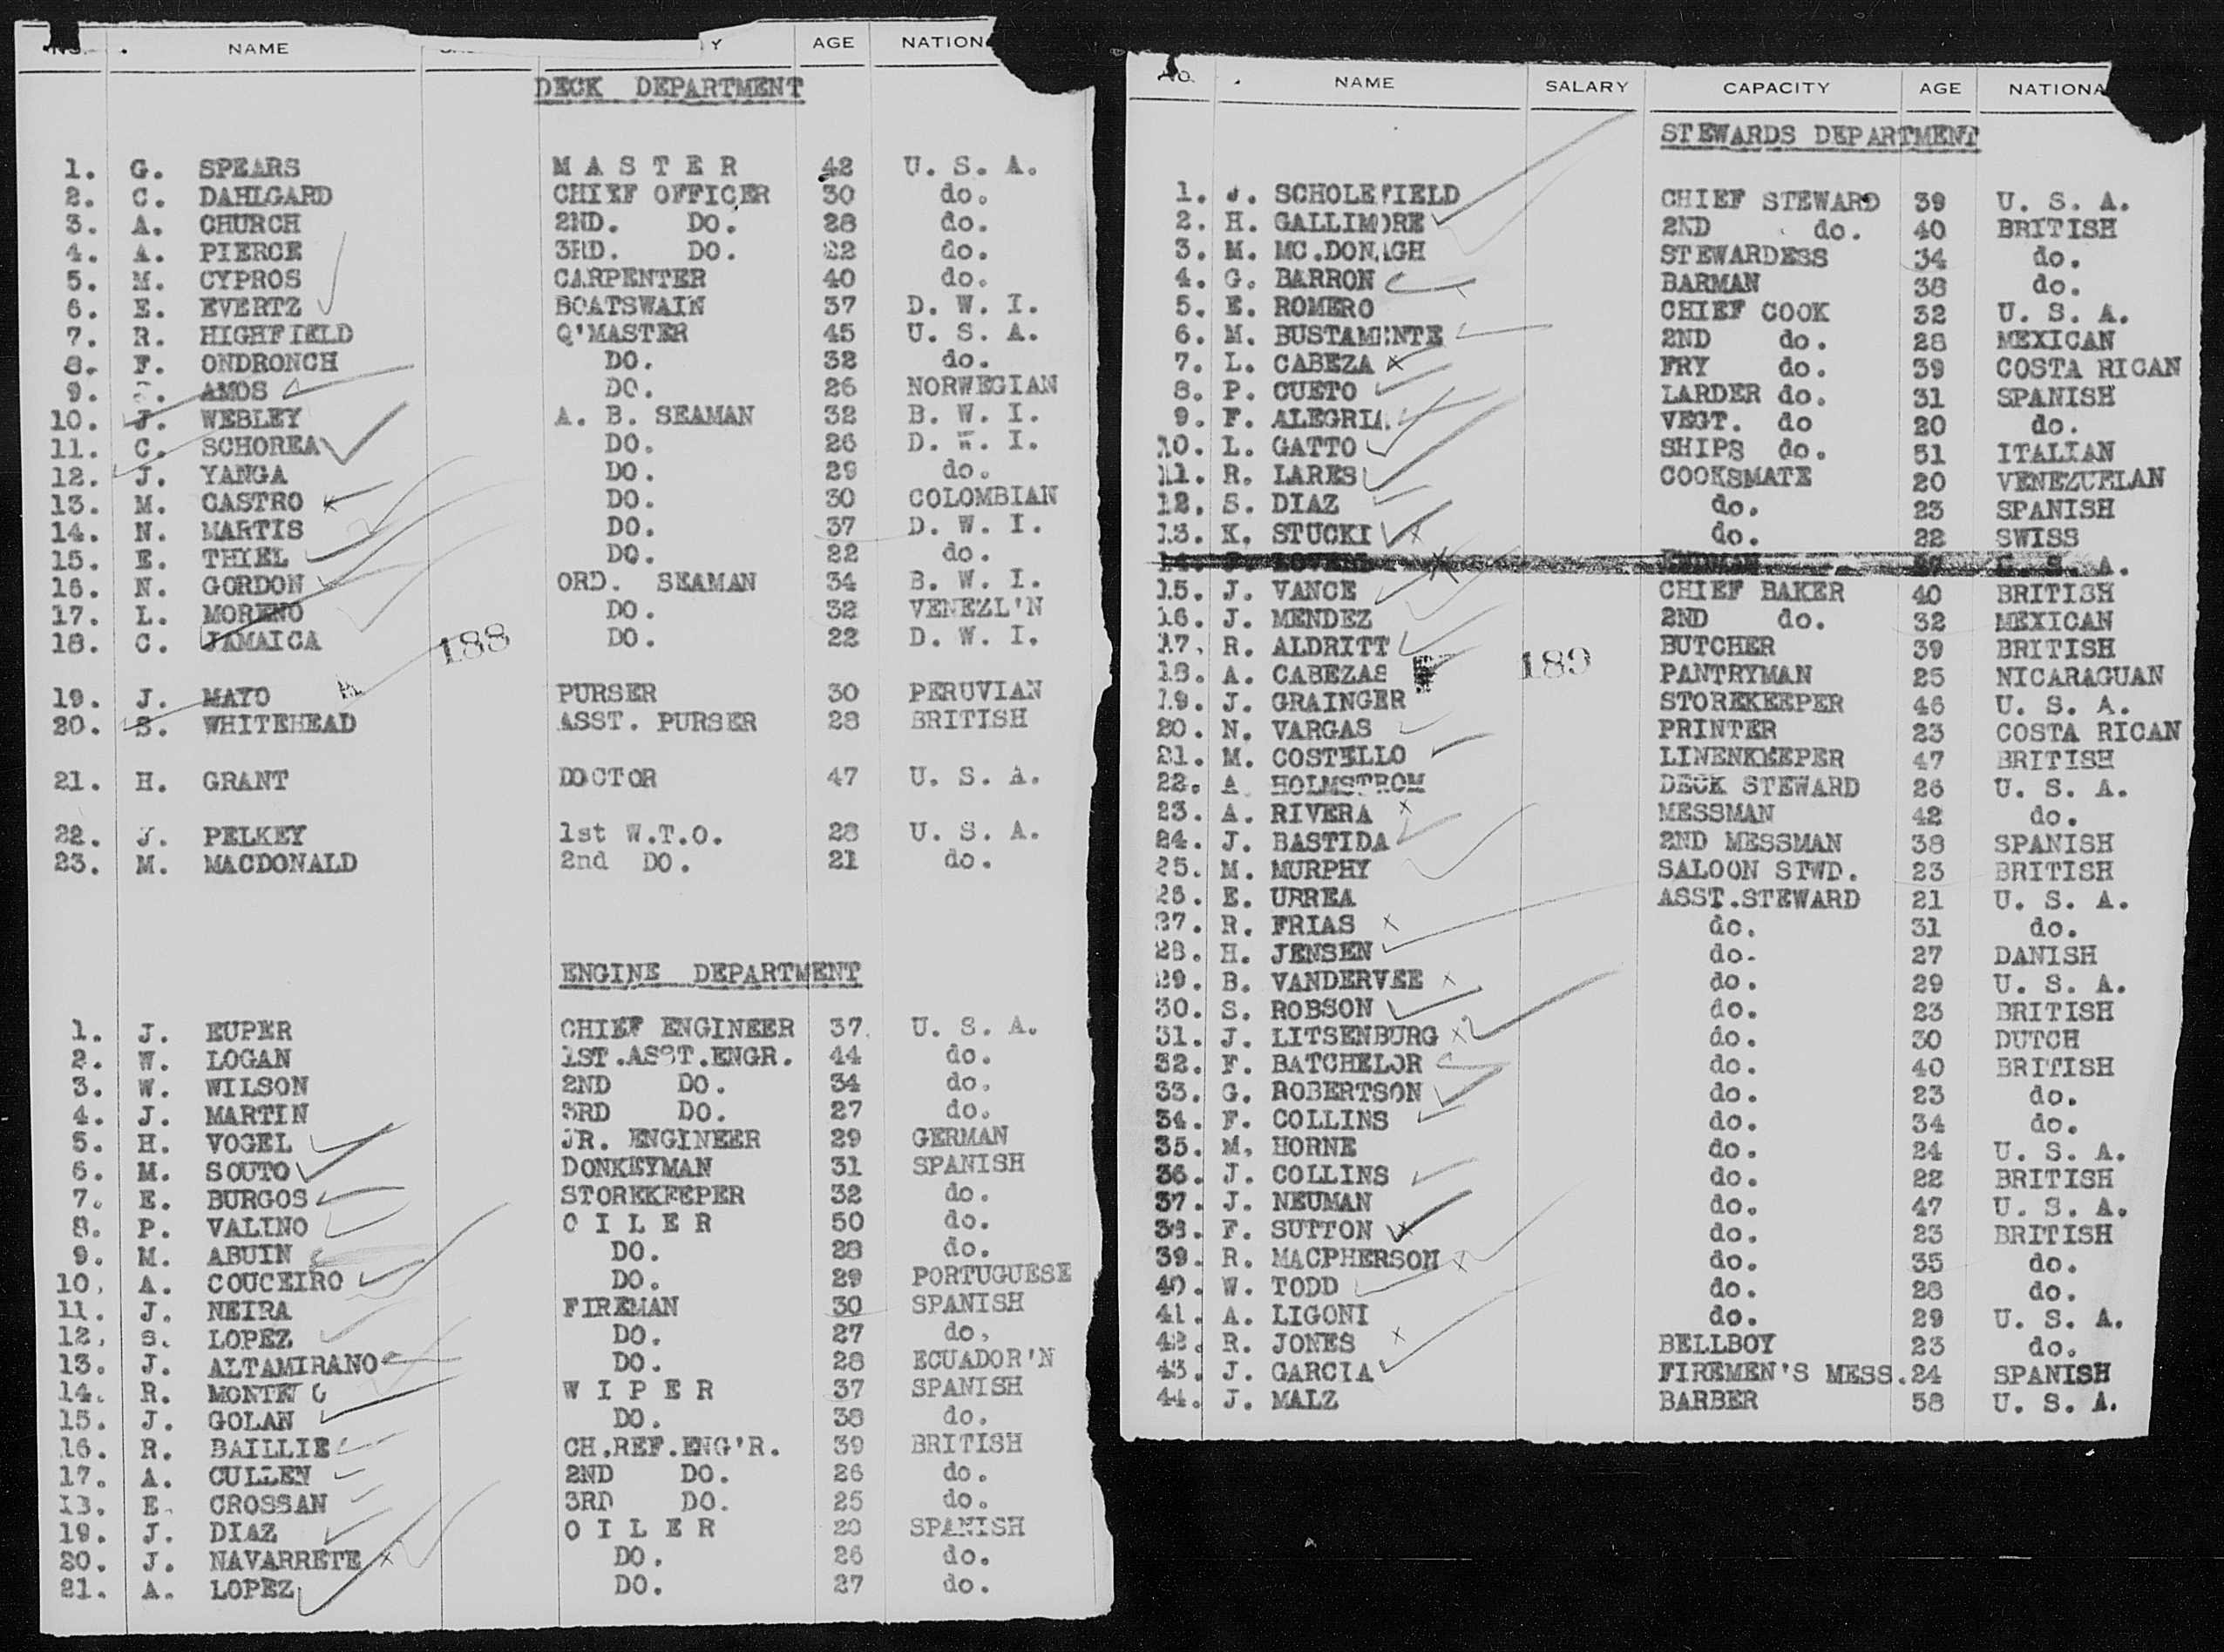 NO. NAME Y AGE NATION
DECK DEPARTMENT
1. G. SPEARS M A S T E R 42 U. S. A.
2. C. DAHLGARD CHIEF OFFICER 30 do.
3. A. CHURCH 2ND. DO. 28 do.
4. A. PIERCE 3RD. DO. 22 do.
5. M. CYPROS CARPENTER 40 do.
6. E. EVERTZ BOATSWAIN 37 D. W. I.
7. R. HIGHFIELD Q'MASTER 45 U. S. A.
8. F. ONDRONCH DO. 32 do.
9. AMOS DO. 26 NORWEGIAN
10. J. WEBLEY A. B. SEAMAN 32 B. W. I.
11. C. SCHOREA DO. 26 D. W. I.
12. J. YANGA DO. 29 do.
13. M. CASTRO DO. 30 COLOMBIAN
14. N. MARTIS DO. 37 D. W. I.
15. E. THIEL DO. 22 do.
16. N. GORDON ORD. SEAMAN 34 B. W. I.
17. L. MORENO DO. 32 VENEZL'N
18. C. JAMAICA DO. 22 D. W. I.
188
19. J. MAYO PURSER 30 PERUVIAN
20. S. WHITEHEAD ASST. PURSER 28 BRITISH
21. H. GRANT DOCTOR 47 U. S. A.
22. J. PELKEY 1st W.T.O. 28 U. S. A.
23. M. MACDONALD 2nd DO. 21 do.
ENGINE DEPARTMENT
1. J. EUPER CHIEF ENGINEER 37. U. S. A.
2. W. LOGAN 1ST.ASST.ENGR. 44 do.
3. W. WILSON 2ND DO. 34 do.
4. J. MARTIN 3RD DO. 27 do.
5. H. VOGEL JR. ENGINEER 29 GERMAN
6. M. SOUTO DONKEYMAN 31 SPANISH
7. E. BURGOS STOREKEEPER 32 do.
8. P. VALINO O I L E R 50 do.
9. M. ABUIN DO. 28 do.
10. A. COUCEIRO DO. 29 PORTUGUESE
11. J. NEIRA FIREMAN 30 SPANISH
12. S. LOPEZ DO. 27 do.
13. J. ALTAMIRANO DO. 28 ECUADOR'N
14. R. W I P E R 37 SPANISH
15. J. GOLAN DO. 38 do.
16. R. BAILLIE CH.REF.ENG'R. 39 BRITISH
17. A. CULLEN 2ND DO. 26 do.
18. E. CROSSAN 3RD DO. 25 do.
19. J. DIAZ O I L E R 20 SPANISH
20. J. NAVARRETE DO. 26 do.
21. A. LOPEZ DO. 27 do.
NO. NAME SALARY CAPACITY AGE NATIONA
STEWARDS DEPARTMENT
1. J. SCHOLEFIELD CHIEF STEWARD 39 U. S. A.
2. H. GALLIMORE 2ND do. 40 BRITISH
3. M. MC.DONAGH STEWARDESS 34 do.
4. G. BARRON BARMAN 38 do.
5. E. ROMERO CHIEF COOK 32 U. S. A.
6. M. BUSTAMENTE 2ND do. 28 MEXICAN
7. L. CABEZA FRY do. 39 COSTA RICAN
8. P. CUETO LARDER do. 31 SPANISH
9. F. ALEGRIA VEGT. do 20 do.
10. L. GATTO SHIPS do. 51 ITALIAN
11. R. LARES COOKSMATE 20 VENEZUELAN
12. S. DIAZ do. 23 SPANISH
13. K. STUCKI do. 22 SWISS
14. U. S. A.
15. J. VANCE CHIEF BAKER 40 BRITISH
16. J. MENDEZ 2ND do. 32 MEXICAN
17. R. ALDRITT BUTCHER 39 BRITISH
18. A. CABEZAS PANTRYMAN 25 NICARAGUAN
189
19. J. GRAINGER STOREKEEPER 46 U. S. A.
20. N. VARGAS PRINTER 23 COSTA RICAN
21. M. COSTELLO LINENKEEPER 47 BRITISH
22. A HOLMSTROM DECK STEWARD 26 U. S. A.
23. A. RIVERA MESSMAN 42 do.
24. J. BASTIDA 2ND MESSMAN 38 SPANISH
25. M. MURPHY SALOON STWD. 23 BRITISH
26. E. URREA ASST.STEWARD 21 U. S. A.
27. R. FRIAS do. 31 do.
28. H. JENSEN do. 27 DANISH
29. B. VANDERVEE do. 29 U. S. A.
30. S. ROBSON do. 23 BRITISH
31. J. LITSENBURG do. 30 DUTCH
32. F. BATCHELOR do. 40 BRITISH
33. G. ROBERTSON do. 23 do.
34. F. COLLINS do. 34 do.
35. M. HORNE do. 24 U. S. A.
36. J. COLLINS do. 22 BRITISH
37. J. NEUMAN do. 47 U. S. A.
38. F. SUTTON do. 23 BRITISH
39. R. MACPHERSON do. 35 do.
40. W. TODD do. 28 do.
41. A. LIGONI do. 29 U. S. A.
42. R. JONES BELLBOY 23 do.
43. J. GARCIA FIREMEN'S MESS. 24 SPANISH
44. J. MALZ BARBER 58 U. S. A.